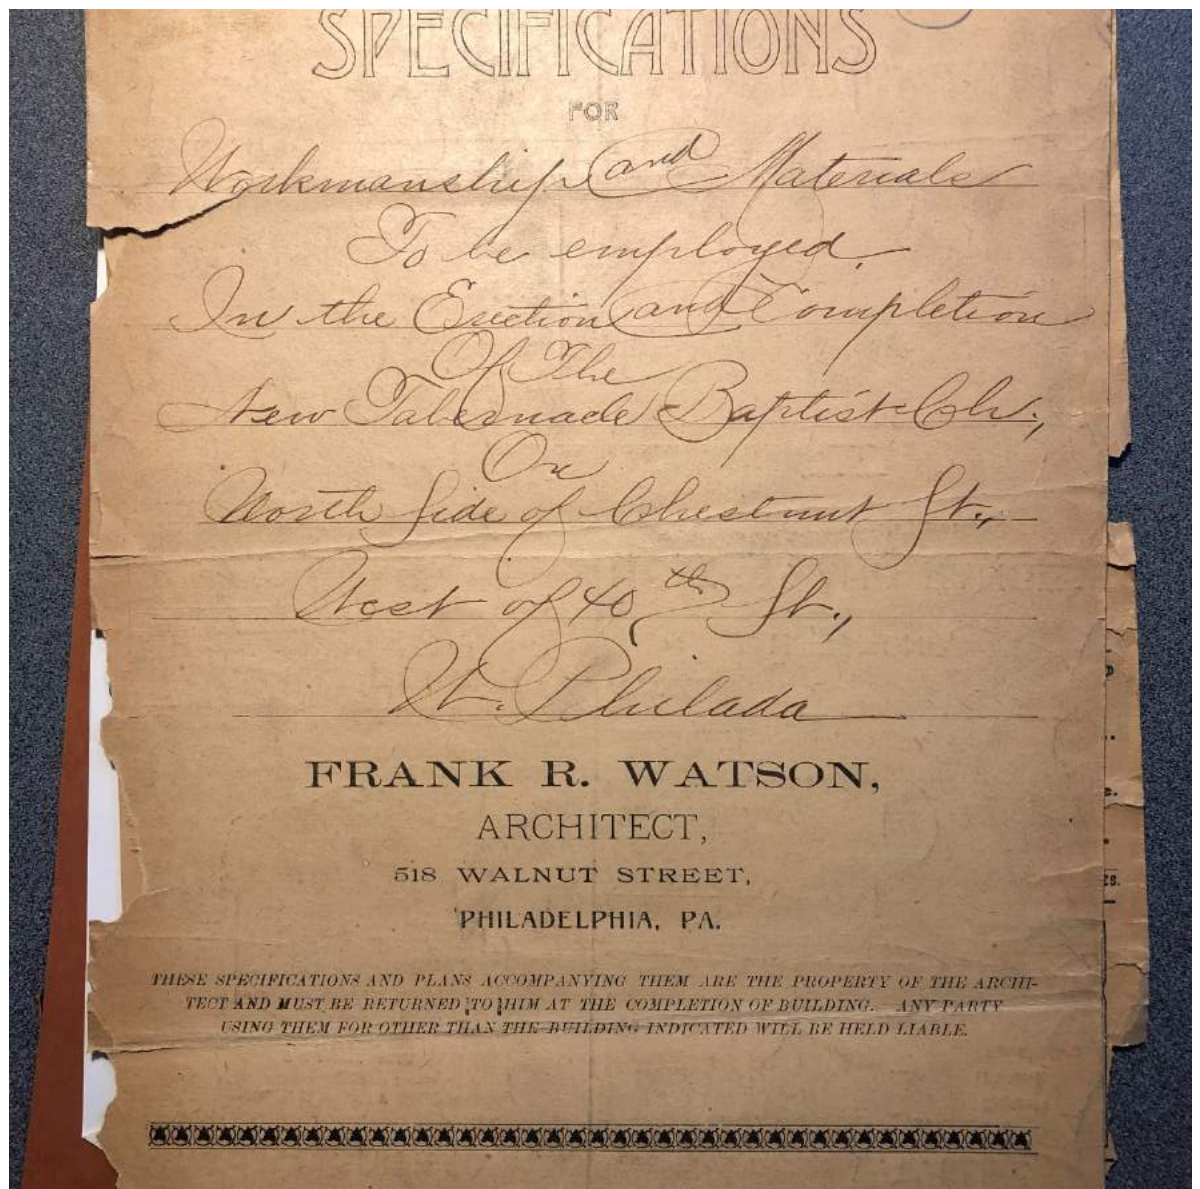 SPECIFICATIONS
FOR
Workmanship and Materials
To be employed.
In the Erection and Completion
Of The
New Tabernacle Baptist Ch.,
On
North Side of Chestnut St.,
West of 40th St.,
W. Philada
FRANK R. WATSON,
ARCHITECT,
518 WALNUT STREET,
PHILADELPHIA, PA.
THESE SPECIFICATIONS AND PLANS ACCOMPANYING THEM ARE THE PROPERTY OF THE ARCHI-
TECT AND MUST BE RETURNED TO HIM AT THE COMPLETION OF BUILDING. ANY PARTY
USING THEM FOR OTHER THAN THE BUILDING INDICATED WILL BE HELD LIABLE.